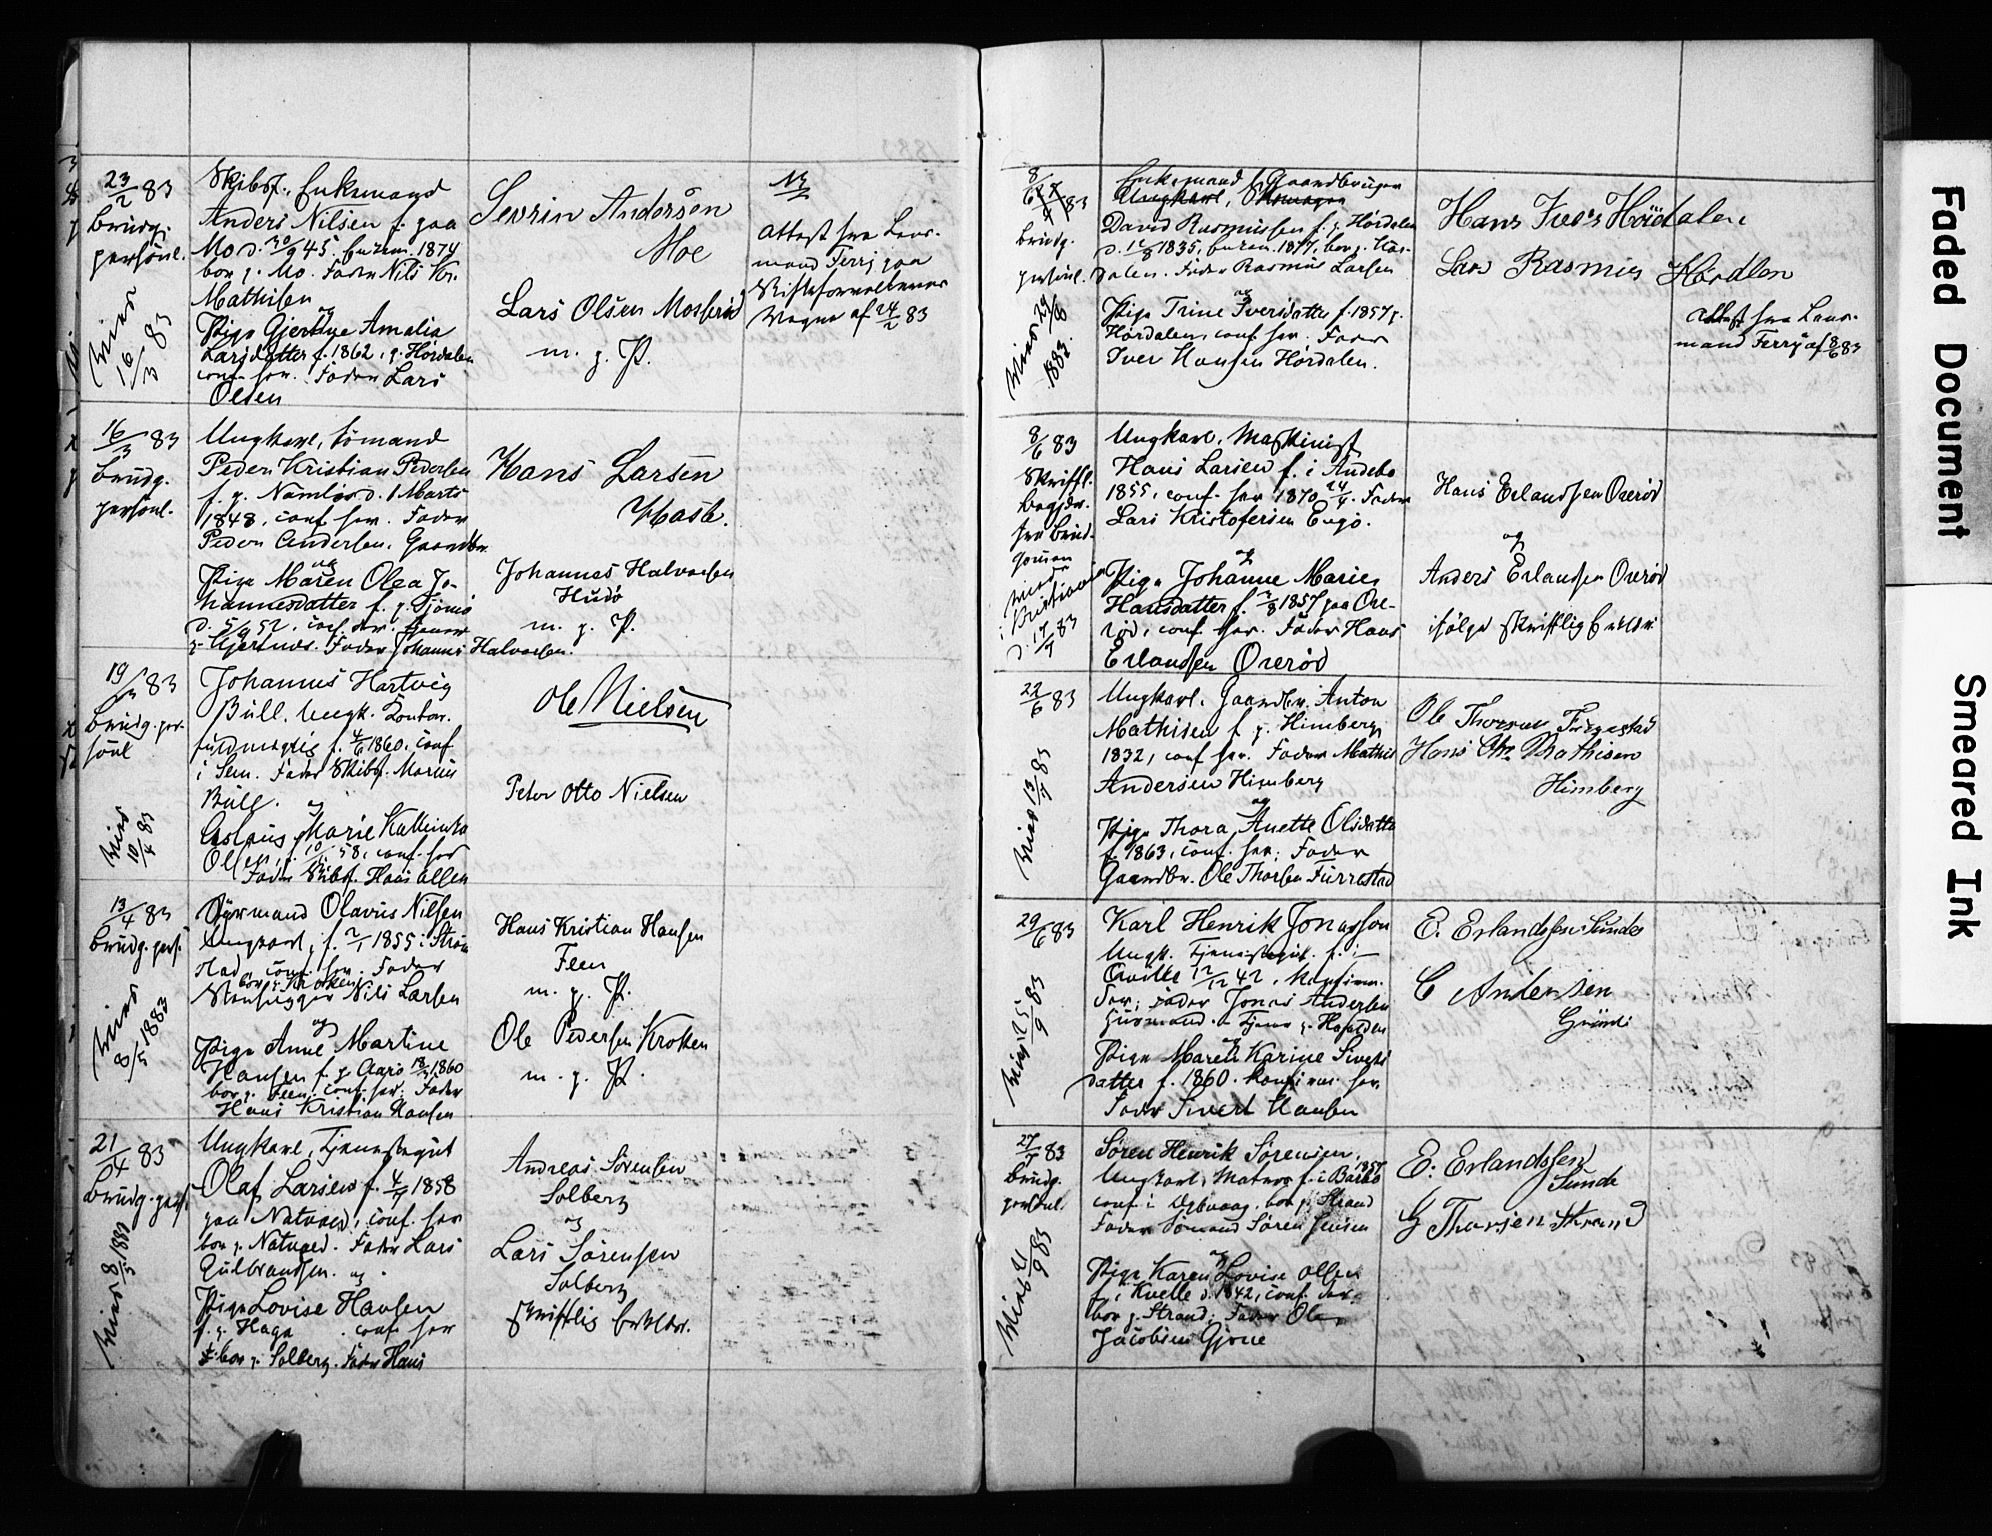 23/2 83
Brudg.
persónl.
Viet
16/3 83
Skibsf., Enkemand
Anders Nilsen f. paa
Mo d. 30/9 45. Enkem. 1874
bor p. Mo. Fader Nils Kr.
Mathisen
og
Pige Gjertine Amalia
Larsdatter f. 1862, p. Hørdalen
conf. her. Fader Lars
Olsen
Sevrin Andersen
Moe
Lars Olsen Mosserød
m. p. P.
Attest fra Lens-
mand Ferry paa
Skifteforvalterens
Vegne af 24/2 83
16/3 83
Brudg.
persónl.
Ungkarl, Sømand
Peder Kristian Pedersen
f. p. Namløs d. 1 Marts
1848, conf her. Fader
Peder Andersen, Gaardbr.
og
Pige Maren Olea Jo-
hannesdatter f. p.
d. 5/9 52, conf. her.
Fader Johannes Halvorsen.
Hans Larsen
Hasle.
Johannes Halvorsen
Hudø
m. p. P.
19/3 83
Brudg. per-
sónl
Viet
10/4 83
Johannes Hartvig
Bull. Ungk. Kontor-
fuldmægtig f. 4/6 1860, conf
i Sem. Fader Skibsf. Marius
Bull.
og
Aslaug Marie Kathinka
Olsen, f. 10/ 58, conf. her
Fader Skibsf. Hans Olsen
Ole Nielsen
Peter Otto Nielsen
13/4 83
Brudg. pers.
Viet
8/5 1883
Styrmand Olavus Nilsen
Ungkarl, f. 2/1 1855 i Strøm-
stad, conf. her. Fader
bor p. Kroken
Stenhugger Nils Larsen
og
Pige Anne Martine
Hansen f. p. Aarø 18/ 1860
bor p. Feen, conf. her. Fader
Hans Kristian Hansen
Hans Kristian Hansen
Feen
m. p. P.
Ole Pedersen Kroken
m. p. P.
21/4 83
Brudg. pers.
Viet 8/5 1883
Ungkarl, Tjenestegut
Olaf Larsen f. 4/9 1858
paa Natvaed, conf. her
bor p. Natvaed. Fader Lars
Gulbrandsen. og
Pige Lovise Hansen
f. p. Haga . conf. her
bor p. Solberg. Fader Hans
Andreas Sørensen
Solberg
og
Lars Sørensen
Solberg
skriftlig Erklær.
8/6 83
Brudg.
persónl.
Viet 29/8
1883.
Enkemand, Gaardbruger
Ungkarl,
David Rasmussen f. p. Hørdalen
d. 12/8 1835, Enkem. 1877, bor p. Hør-
dalen. Fader Rasmus Larsen
og
Pige Trine Iversdatter f. 1857 p.
Hørdalen, conf. her. Fader
Iver Hansen Hørdalen.
Hans Ivers Hördalen
Lars Rasmus Hördlen
Attest fra Lens-
mand Ferry af 8/6 83
8/6 83
Skriftl.
Begjær.
fra Brud-
gomen
Viede
i Kristiania
d. 17/7 83
Ungkarl, Maskinist
Hans Larsen f. i Andebo
1855, conf. her 1870 24/4. Fader
Lars Kristofersen Engø.
og
Pige Johanne Marie
Hansdatter f. 2/8 1857 paa Ore-
rød, conf. her. Fader Hans
Erlandsen Orerød
Hans Erlandsen Orerød
og
Anders Erlansen Orerød
ifølge skriftlig Erklær.
22/6 83
Viet 13/7 83
Ungkarl, Gaardbr. Anton
Mathisen f. p. Himberg
1832, conf. her. Fader Mathis
Andersen Himberg
og
Pige Thora Anette Olsdatter
f. 1863, conf. her. Fader
Gaardbr. Ole Thorsen Furrestad
Ole Thorsen Furrestad
Hans Chr. Mathisen
Himberg
29/6 83
Viet 25/9 83
Karl Henrik Jonasson
Ungk. Tjenestegut. f. i
12/12 42, Konfirm.
her, Fader Jonas Andersen
Husmand.
og
Pige Maren Karine Siverts
datter f. 1860. Konfirm. her.
Fader Sivert Hansen
E. Erlandssen Sunde
C Andersen
27/7 83
Brudg.
persónl.
Viet 21/9 83
Søren Henrik Sørensen,
Ungkarl, Matros f. i Barbo 1857
conf i Dybvaag, bor p. Strand
Fader Sømand Søren Jensen
og
Pige Karen Lovise Olsen
f. i Kvelle d. 1842, conf. der
bor p. Strand; Fader Ole
Jacobsen Gjone
E. Erlandssen
Sunde
G Thorsen Strand
Faded Document
Smeared Ink